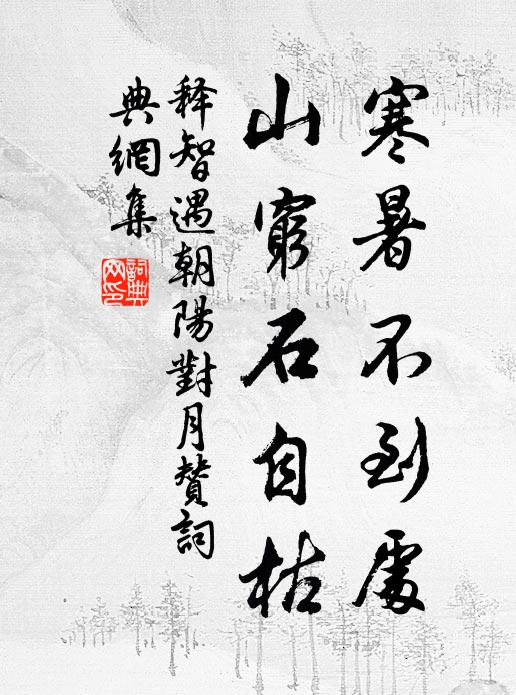 寒暑不到處
山窮石自枯
释智遇朝陽對月賛詞
典網集
詞典
网印